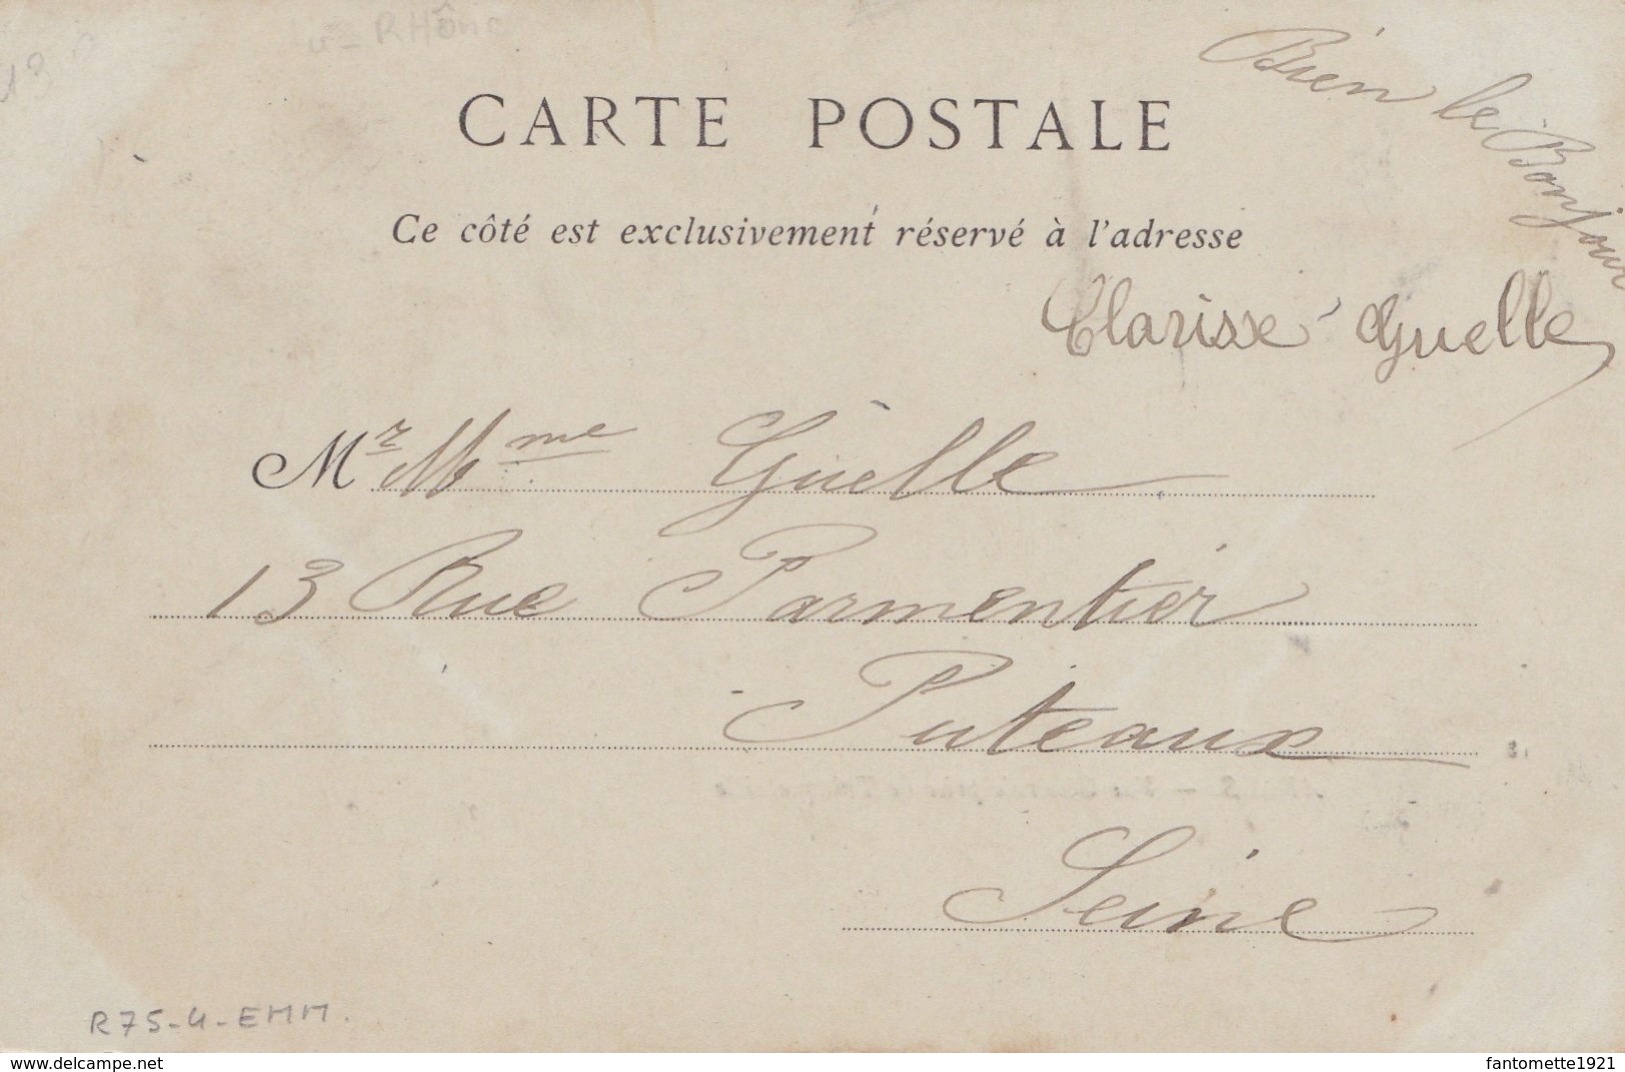 13
RHône
CARTE POSTALE
Bien le Bonjour
Ce côté est exclusivement réservé à l'adresse
Clarisse Guelle
Mr Mme Guelle
13 Rue Parmentier
Puteaux
Seine
R75-4-EMM.
www.delcampe.net
fantomette1921